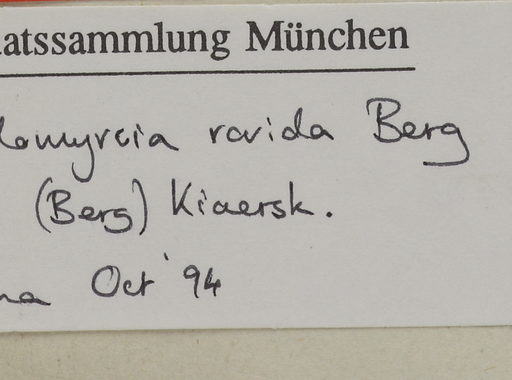 atssammlung München
lomyrcia rovida Berg
(Berg) Kiaersk.
na Oct '94